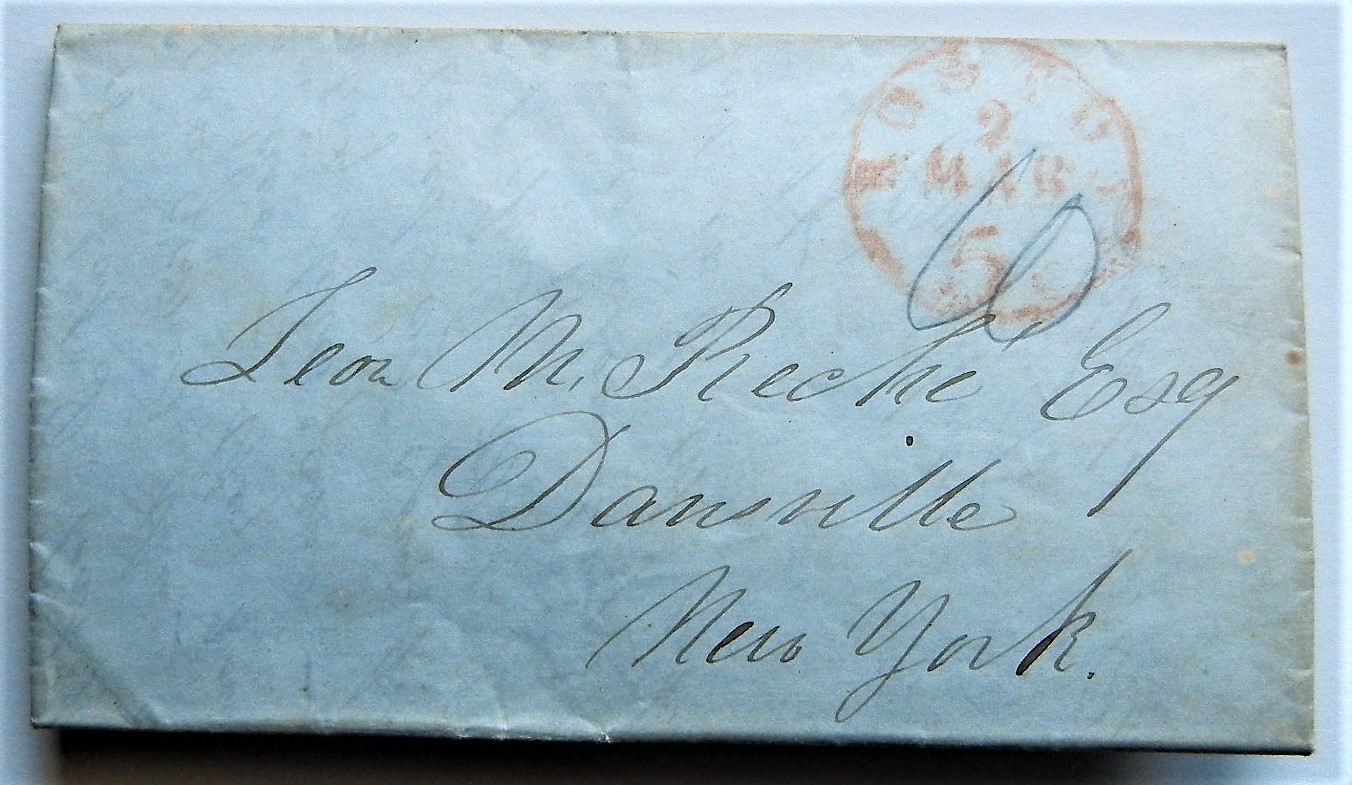 BOSTON
2
MAR
5
Leon M. Esq
Dansville
New York.